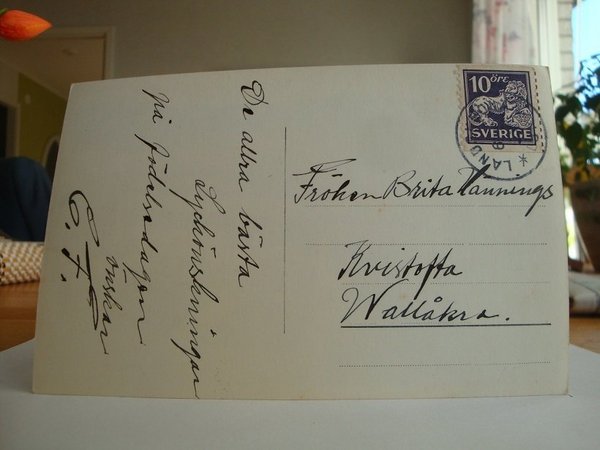 De allra bästa
Lyckönskningar
på födelsedagen
önskar
E. F.
10 ÖRE
SVERIGE
LAND
Fröken Brita Nannings
Kvistofta
Wallåkra.